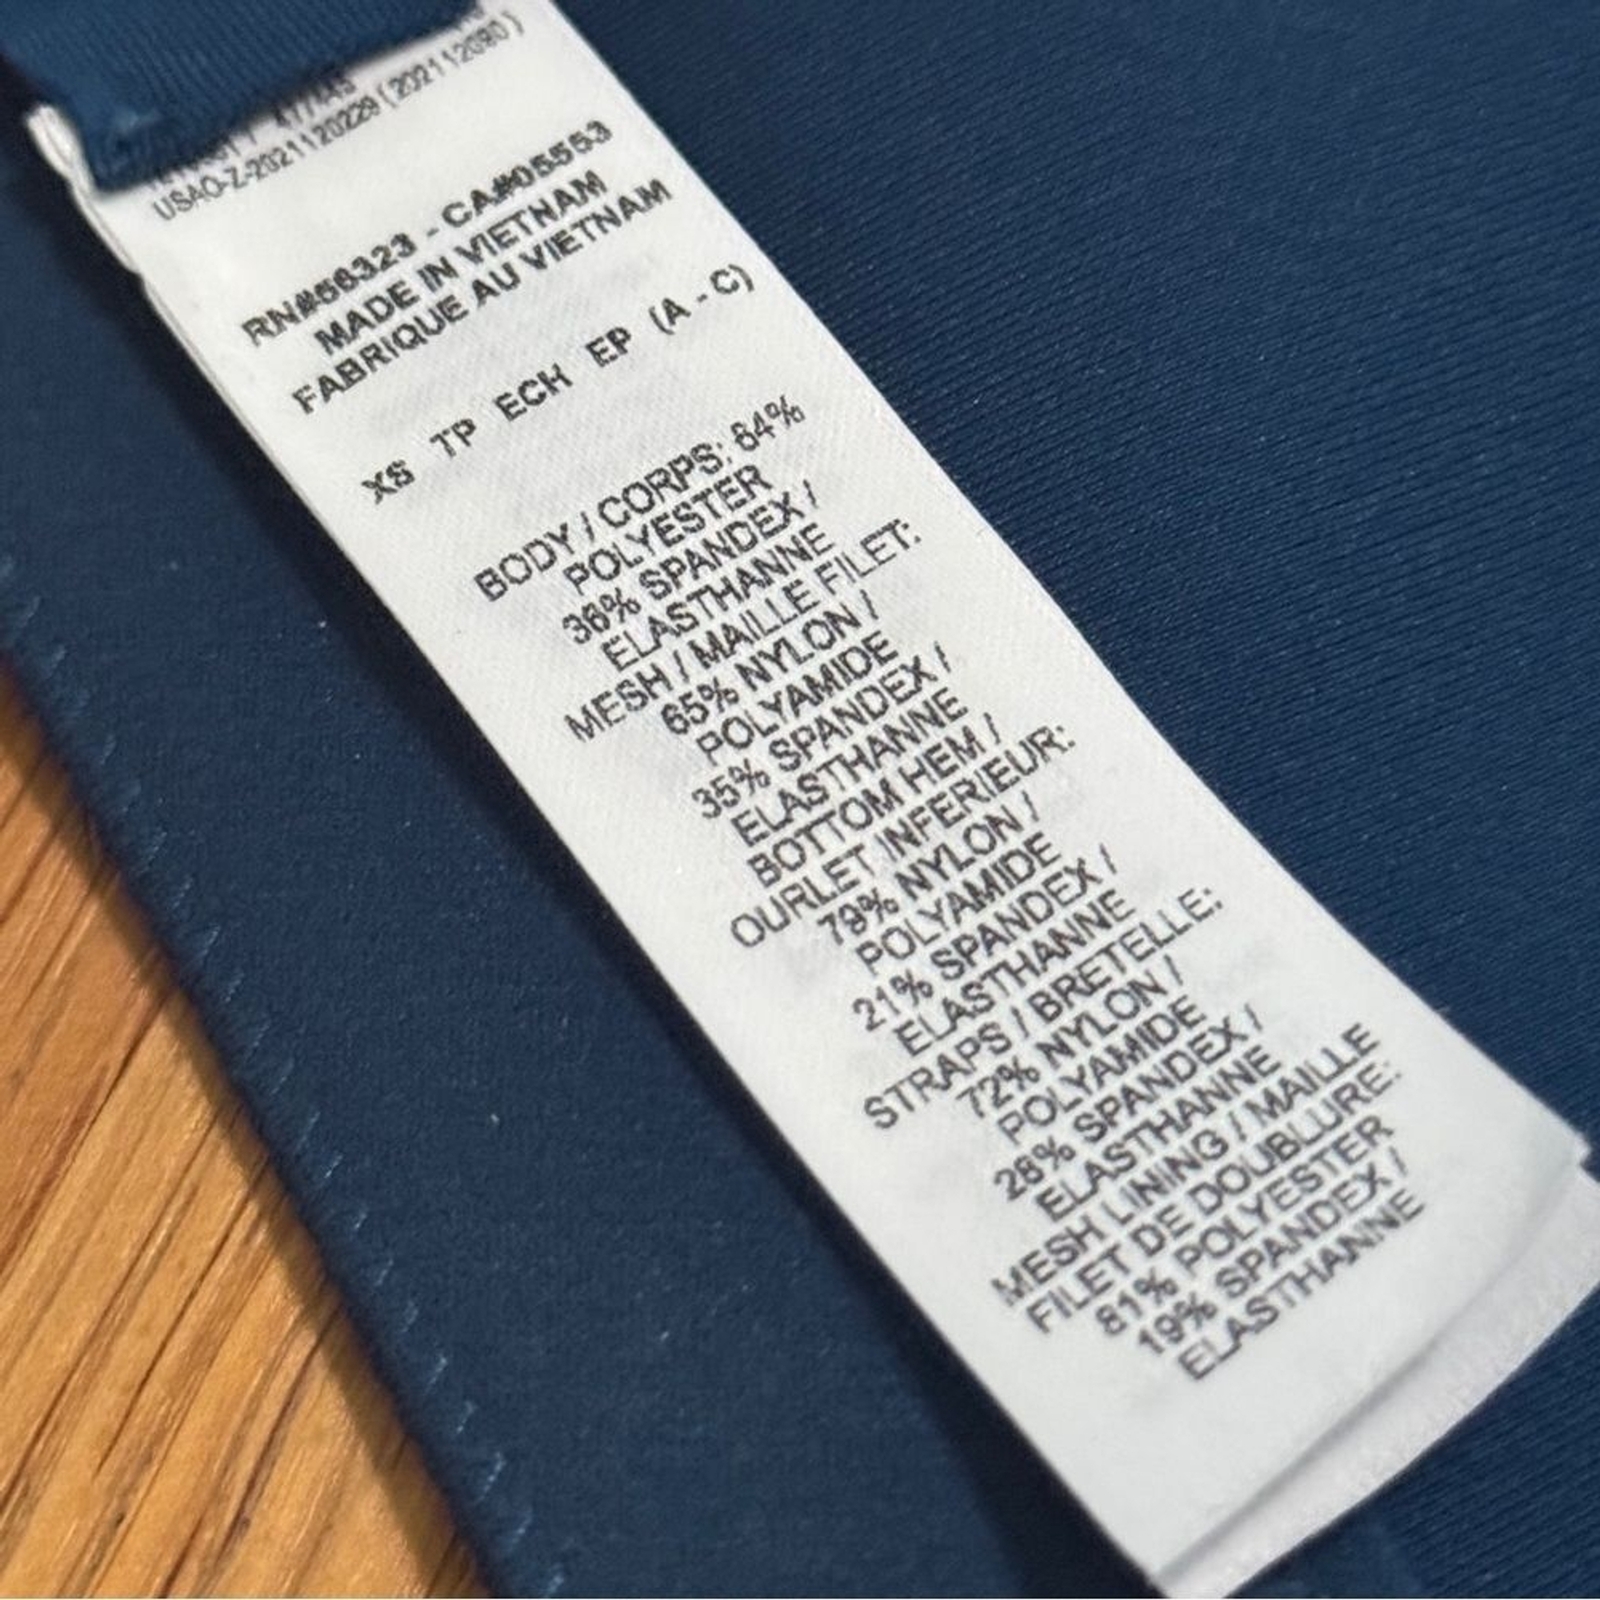 USAO-Z-2021120229 (202112080)
RN#56323 - CA#05553
MADE IN VIETNAM
FABRIQUE AU VIETNAM
XS TP ECH EP (A - C)
BODY / CORPS: 64%
POLYESTER
36% SPANDEX /
ELASTHANNE
MESH / MAILLE FILET:
65% NYLON /
POLYAMIDE
35% SPANDEX /
ELASTHANNE
BOTTOM HEM /
OURLET INFERIEUR:
79% NYLON /
POLYAMIDE
21% SPANDEX /
ELASTHANNE
STRAPS / BRETELLE:
72% NYLON /
POLYAMIDE
28% SPANDEX /
ELASTHANNE
MESH LINING / MAILLE
FILET DE DOUBLURE:
81% POLYESTER
19% SPANDEX /
ELASTHANNE